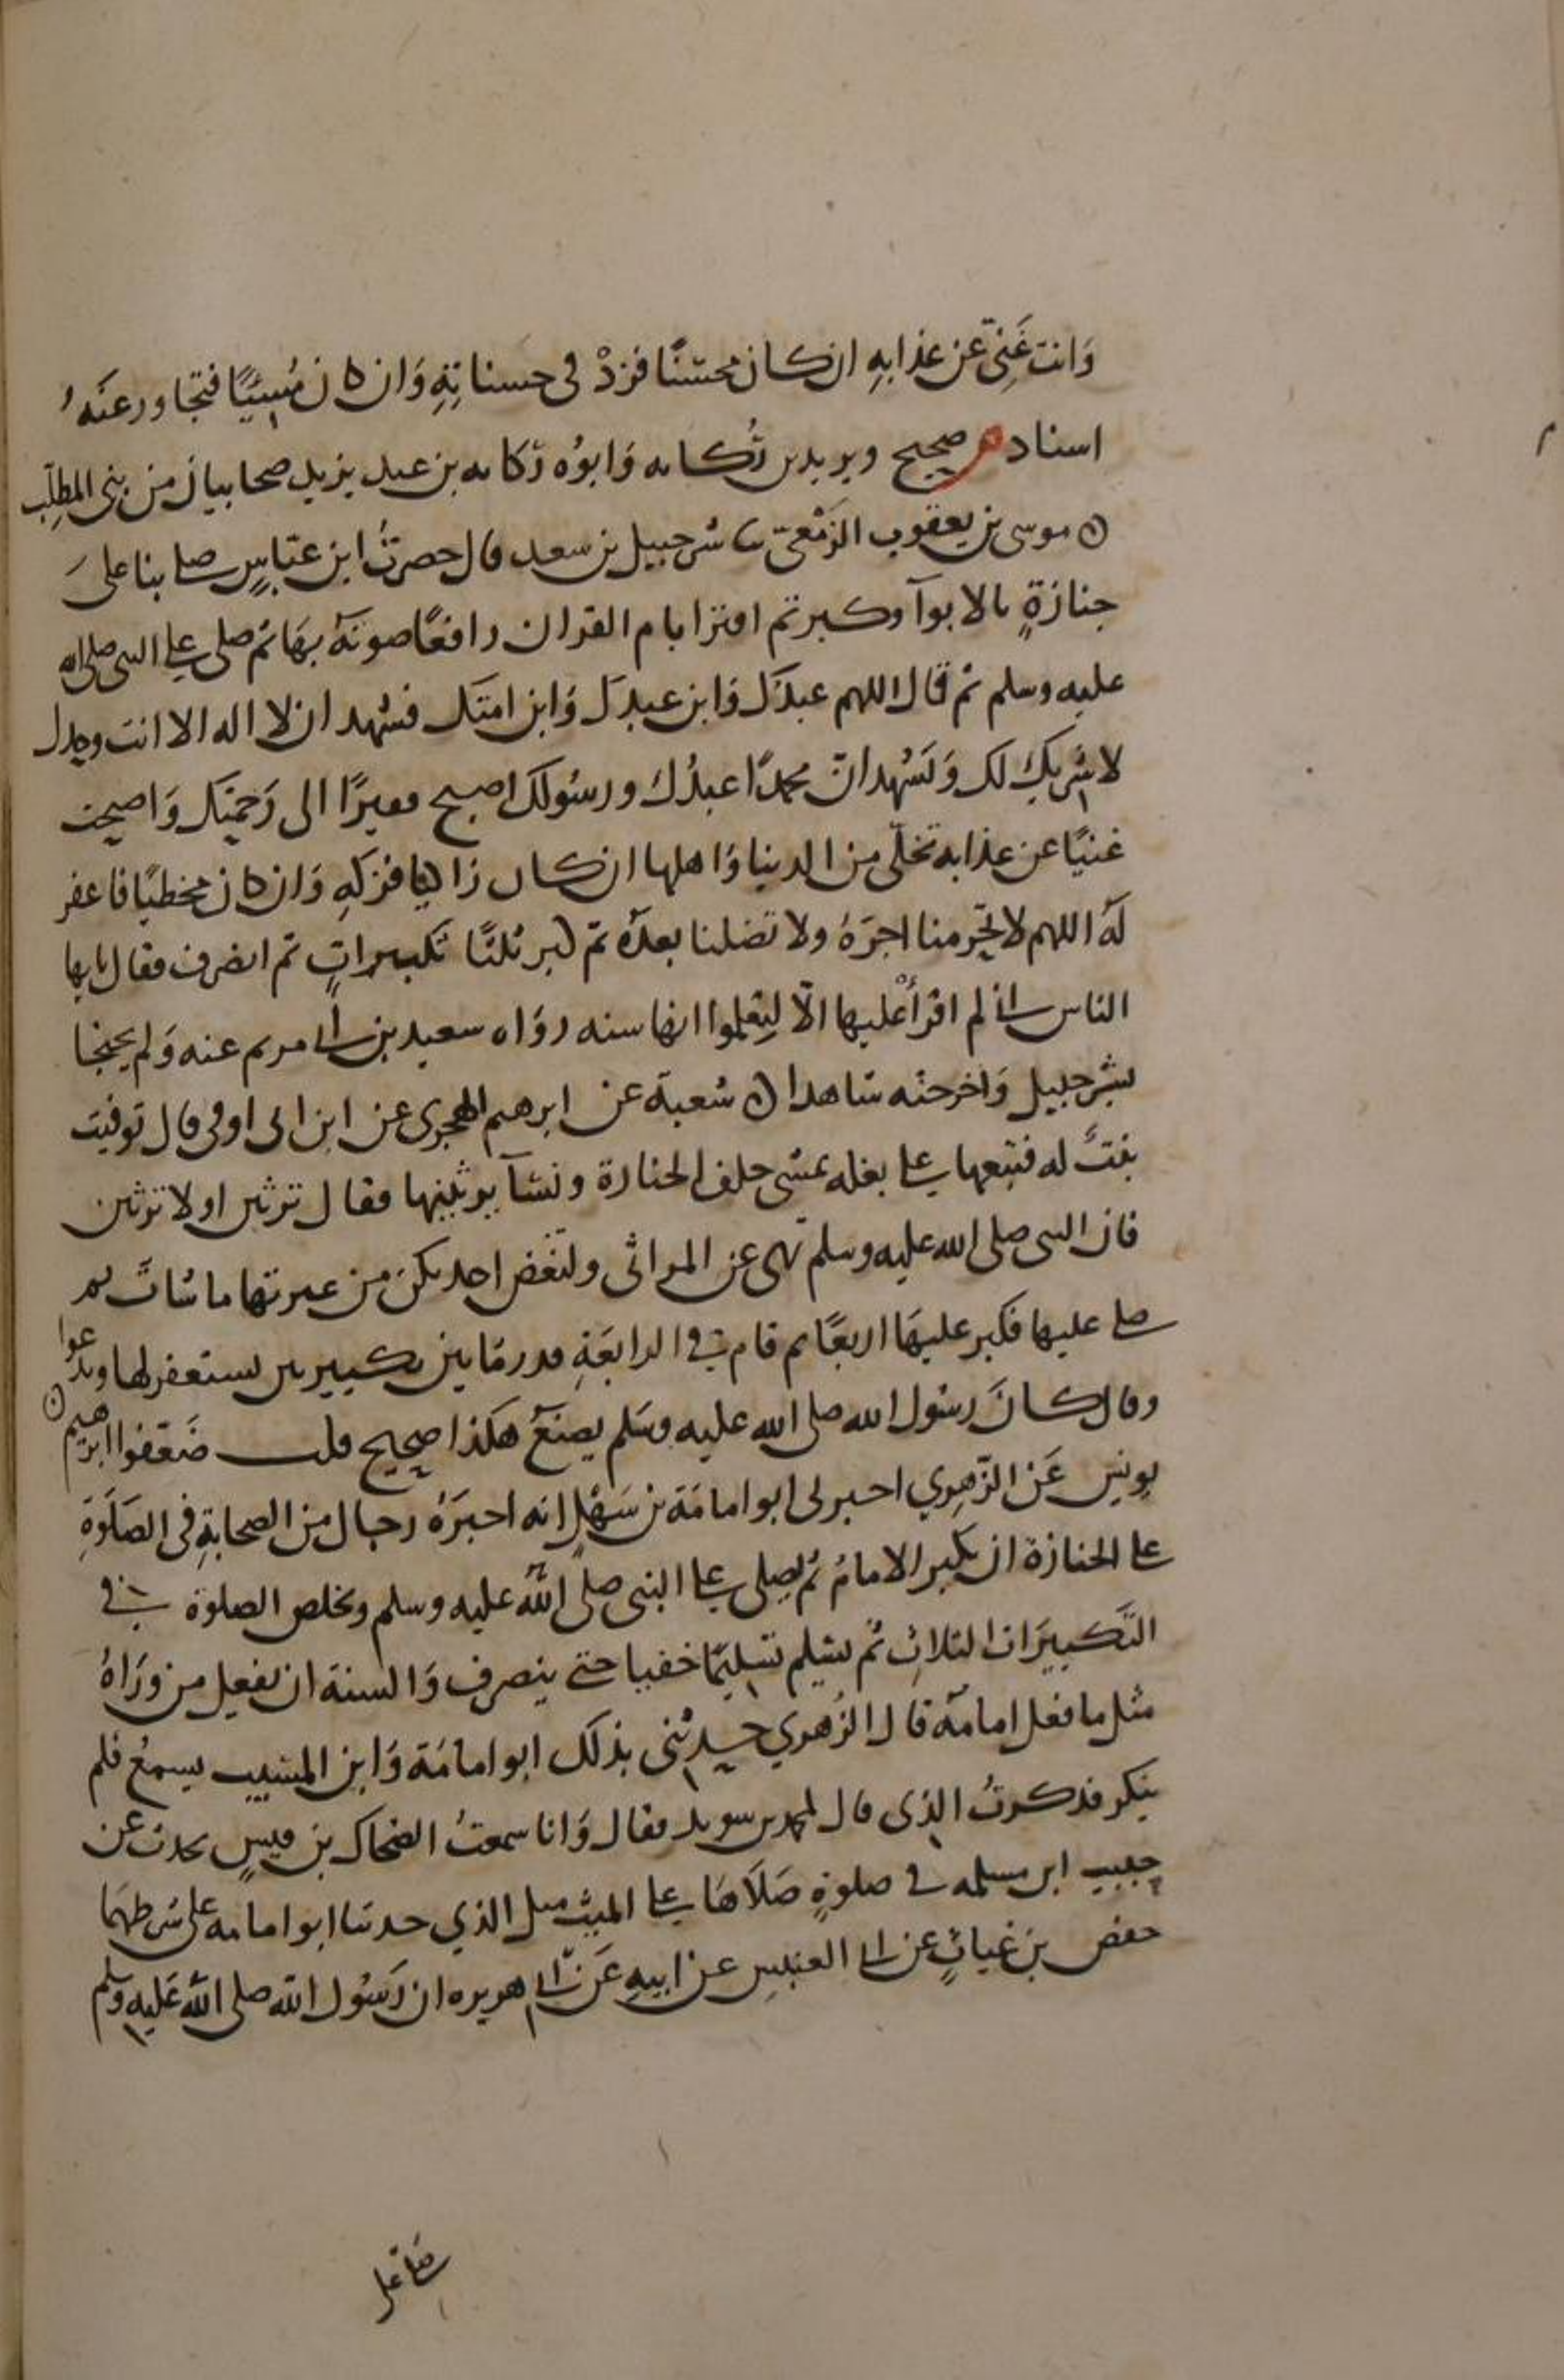 وَانت غَنِيّ عن عذابهِ ان كان محسنًا فزدْ في حسناتهِ وَان كان مُسِيئًا فتجاوز عنهُ
اسناده صحيح ويزيد بن رُكانه وَابوُه ركانه بن عبد يزيد صحابيان من بني المطلِب
ن موسى بن يعقوب الزمْعيّ ثنا شرحبيل بن سعد قال حضرتُ ابن عبّاسٍ صلى بنا علىَ
جنازةٍ بالابوآ وكبر ثم اقترا بام القران رافعًا صوتهُ بهَا ثم صلى على النبي صلى الله
عليه وسلم ثم قال اللهم عبدكَ وَابن عبدكَ وَابن امتكَ فشهد ان لا اله الا انت وحدك
لا شريكَ لك وَتشهد انّ محمدًا عبدُك ورسُولكَ اصبح فقيرًا الى رَحمتكَ وَاصبحت
غنيًا عن عذابه تخلّى من الدنيا وَاهلها ان كان زاكيا فزكهِ وَان كان مخطيًا فاغفر
لهُ اللهم لا تحرمنا اجرَهُ ولا تضلنا بعدَه ثم كبر ثلثًا تكبيراتٍ ثم انصرف فقال يايها
الناس اني لم اقرأْ عليها الّا لتعلموا انها سنه روَاه سعيد بن ابي مريم عنه وَلم يحتجا
بشرحبيل وَاخرجته شاهدا ن شعبة عن ابرهيم الهجري عن ابن ابي اوفى قال توفيت
بنتٌ له فتبعها على بغله يمشي خلف الجنازة ونسَآ يرثينها فقال ترثين اولا ترثين
فان النبي صلى الله عليه وسلم نهى عن المراثي ولتفض احديكنّ من عبرتها ما شات ثم
صلى عليها فكبر عليهَا اربعًا ثم قام في الرابعَةِ قدر ما بين تكبيرتين يستغفر لها ويدعوا
وقال كانَ رسُول الله صلى الله عليه وسَلم يصنعُ هكذا صحيح قلت ضَعّفوا ابرهيم ن
يونس عَن الزّهرِي اخبرني ابو امامَة بن سَهْلٍ انه اخبرَهُ رجال من الصحابةِ في الصَلَوةِ
على الجنازة ان يكبر الامامُ ثم يُصلي على النبي صلى اللّه عليه وسلم ويخلص الصلوة في
التَكبيرَات الثلاثِ ثم يسَلم تسليمًا خفيا حتى ينصرف وَالسنة ان يفعل من ورَاهُ
مثل ما فعل امامهُ قال الزُهري حدثني بذلك ابو امامَة وَابن المسَيب يسمعُ فلم
ينكر فذكرتُ الذي قال لمحمد بن سويد فقال وَانا سمعتُ الضحاك بن قيسٍ يحدث عن
حبيب ابن مسلمه في صلوةٍ صَلاهَا على الميّت مثل الذي حدثنا ابو امامه على شرطهمَا
حفص بن غياثٍ عن ابي العنبسِ عن ابيهِ عَن ابي هريره ان رَسُول الله صلى اللّه عَليهِ وسلم